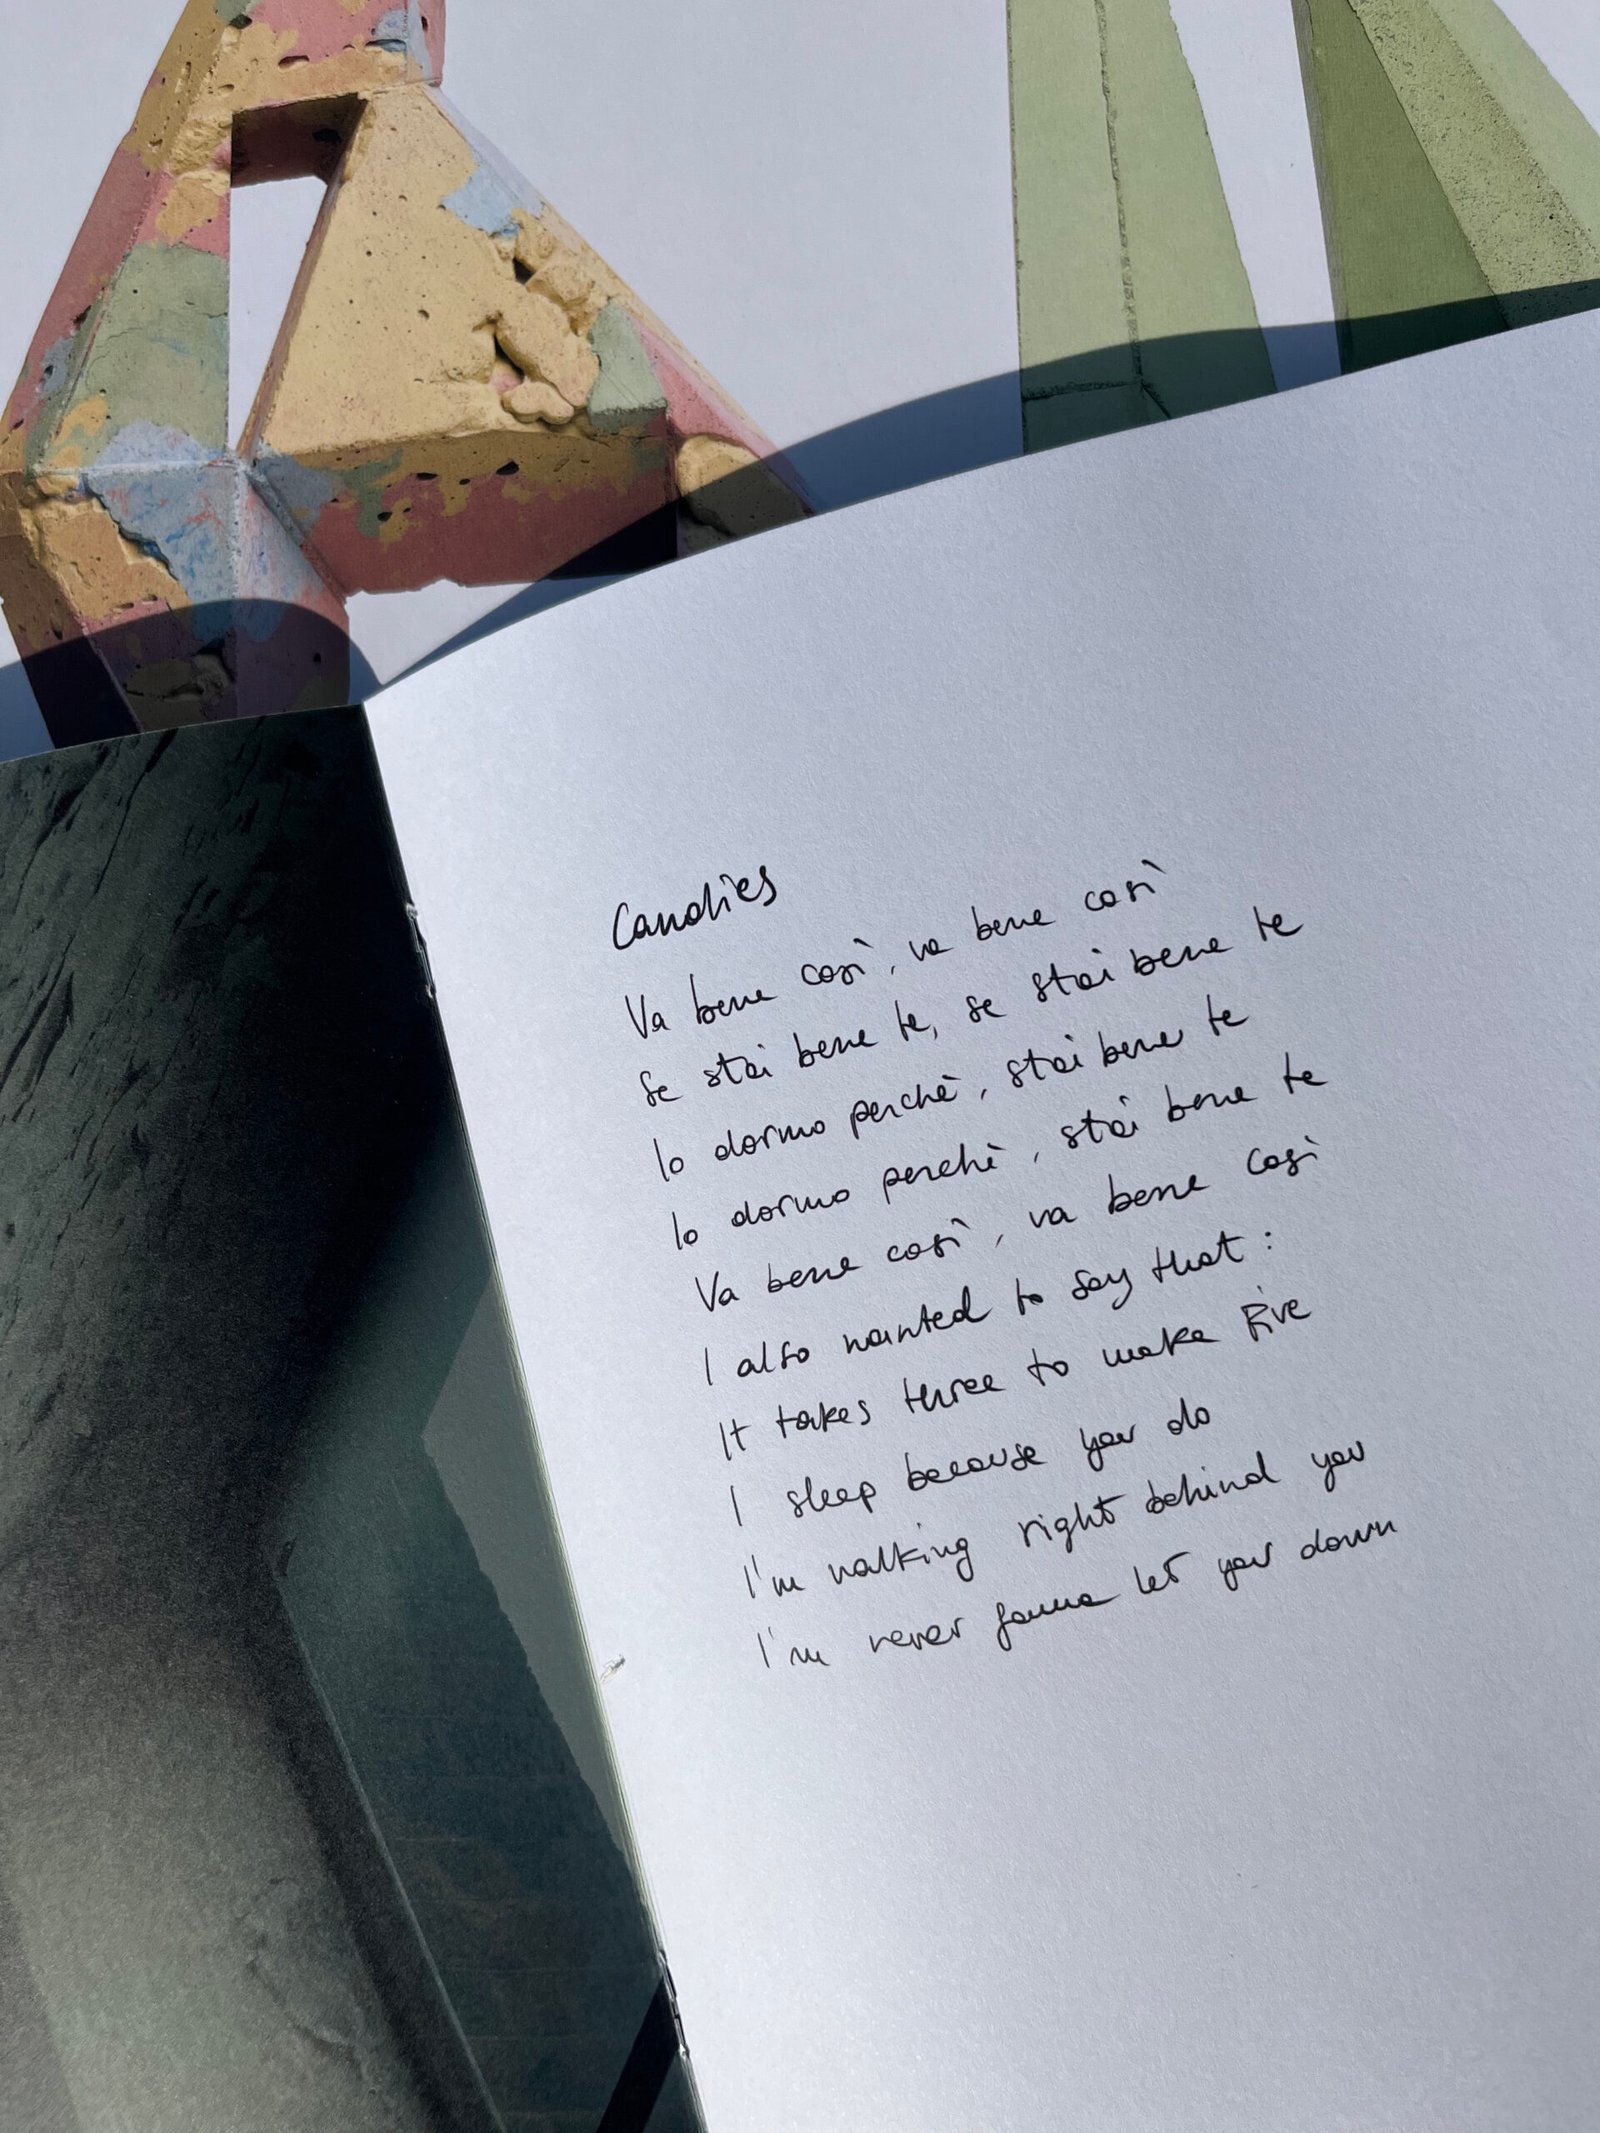 Candies
Va bene così, va bene così
Se stai bene te, se stai bene te
Io dormo perchè, stai bene te
Io dormo perchè, stai bene te
Va bene così, va bene così
I also wanted to say that:
It takes three to make Five
I sleep because you do
I'm walking right behind you
I'm never gonna let you down